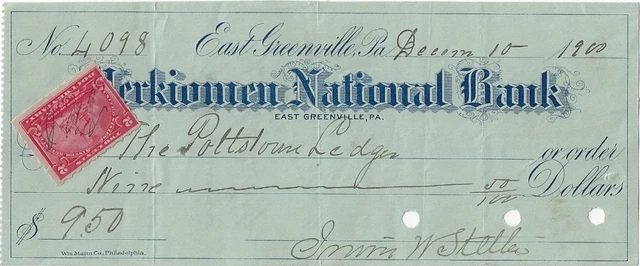 No. 4098 East Greenville, Pa. Decem 10 1900
Perkiomen National Bank
EAST GREENVILLE, PA.
The Pottstown Ledger or order
Nine 50/100 Dollars
$ 9.50
Wm. Mann Co., Philadelphia.
Irwin W